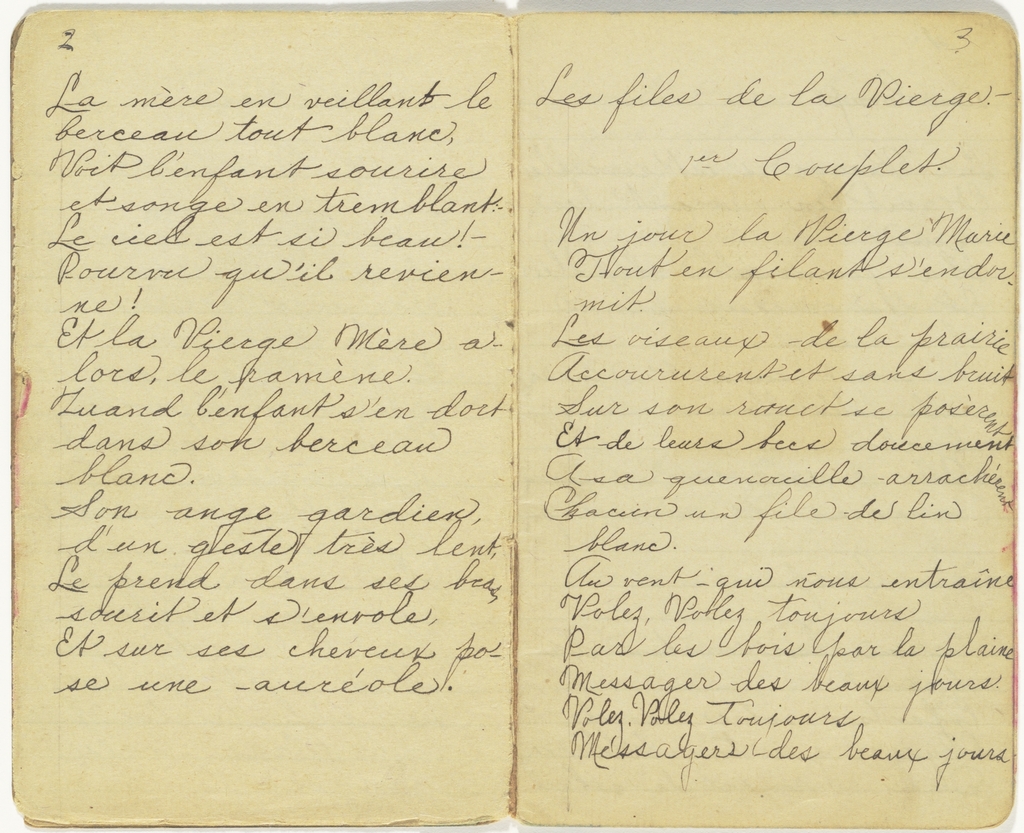 2
La mère en veillant le
berceau tout blanc,
Voit l'enfant sourire
et songe en tremblant:-
Le ciel est si beau!-
Pourvu qu'il revien-
ne!
Et la Vierge Mère a-
lors, le ramène.
Quand l'enfant s'en dort
dans son berceau
blanc.
Son ange gardien,
d'un geste très lent,
Le prend dans ses bras,
sourit et s'envole,
Et sur ses cheveux po-
se une auréole.
3
Les files de la Vierge.-
1er Couplet.
Un jour la Vierge Marie
Tout en filant s'endor-
mit.
Les oiseaux de la prairie
Accoururent et sans bruit
Sur son rouet se posèrent
Et de leurs becs doucement
A sa quenouille arrachèrent
Chacun un file de lin
blanc.
Au vent qui nous entraîne
Volez, Volez toujours
Par les bois par la plaine
Messager des beaux jours.
Volez, Volez Toujours,
Messagers des beaux jours